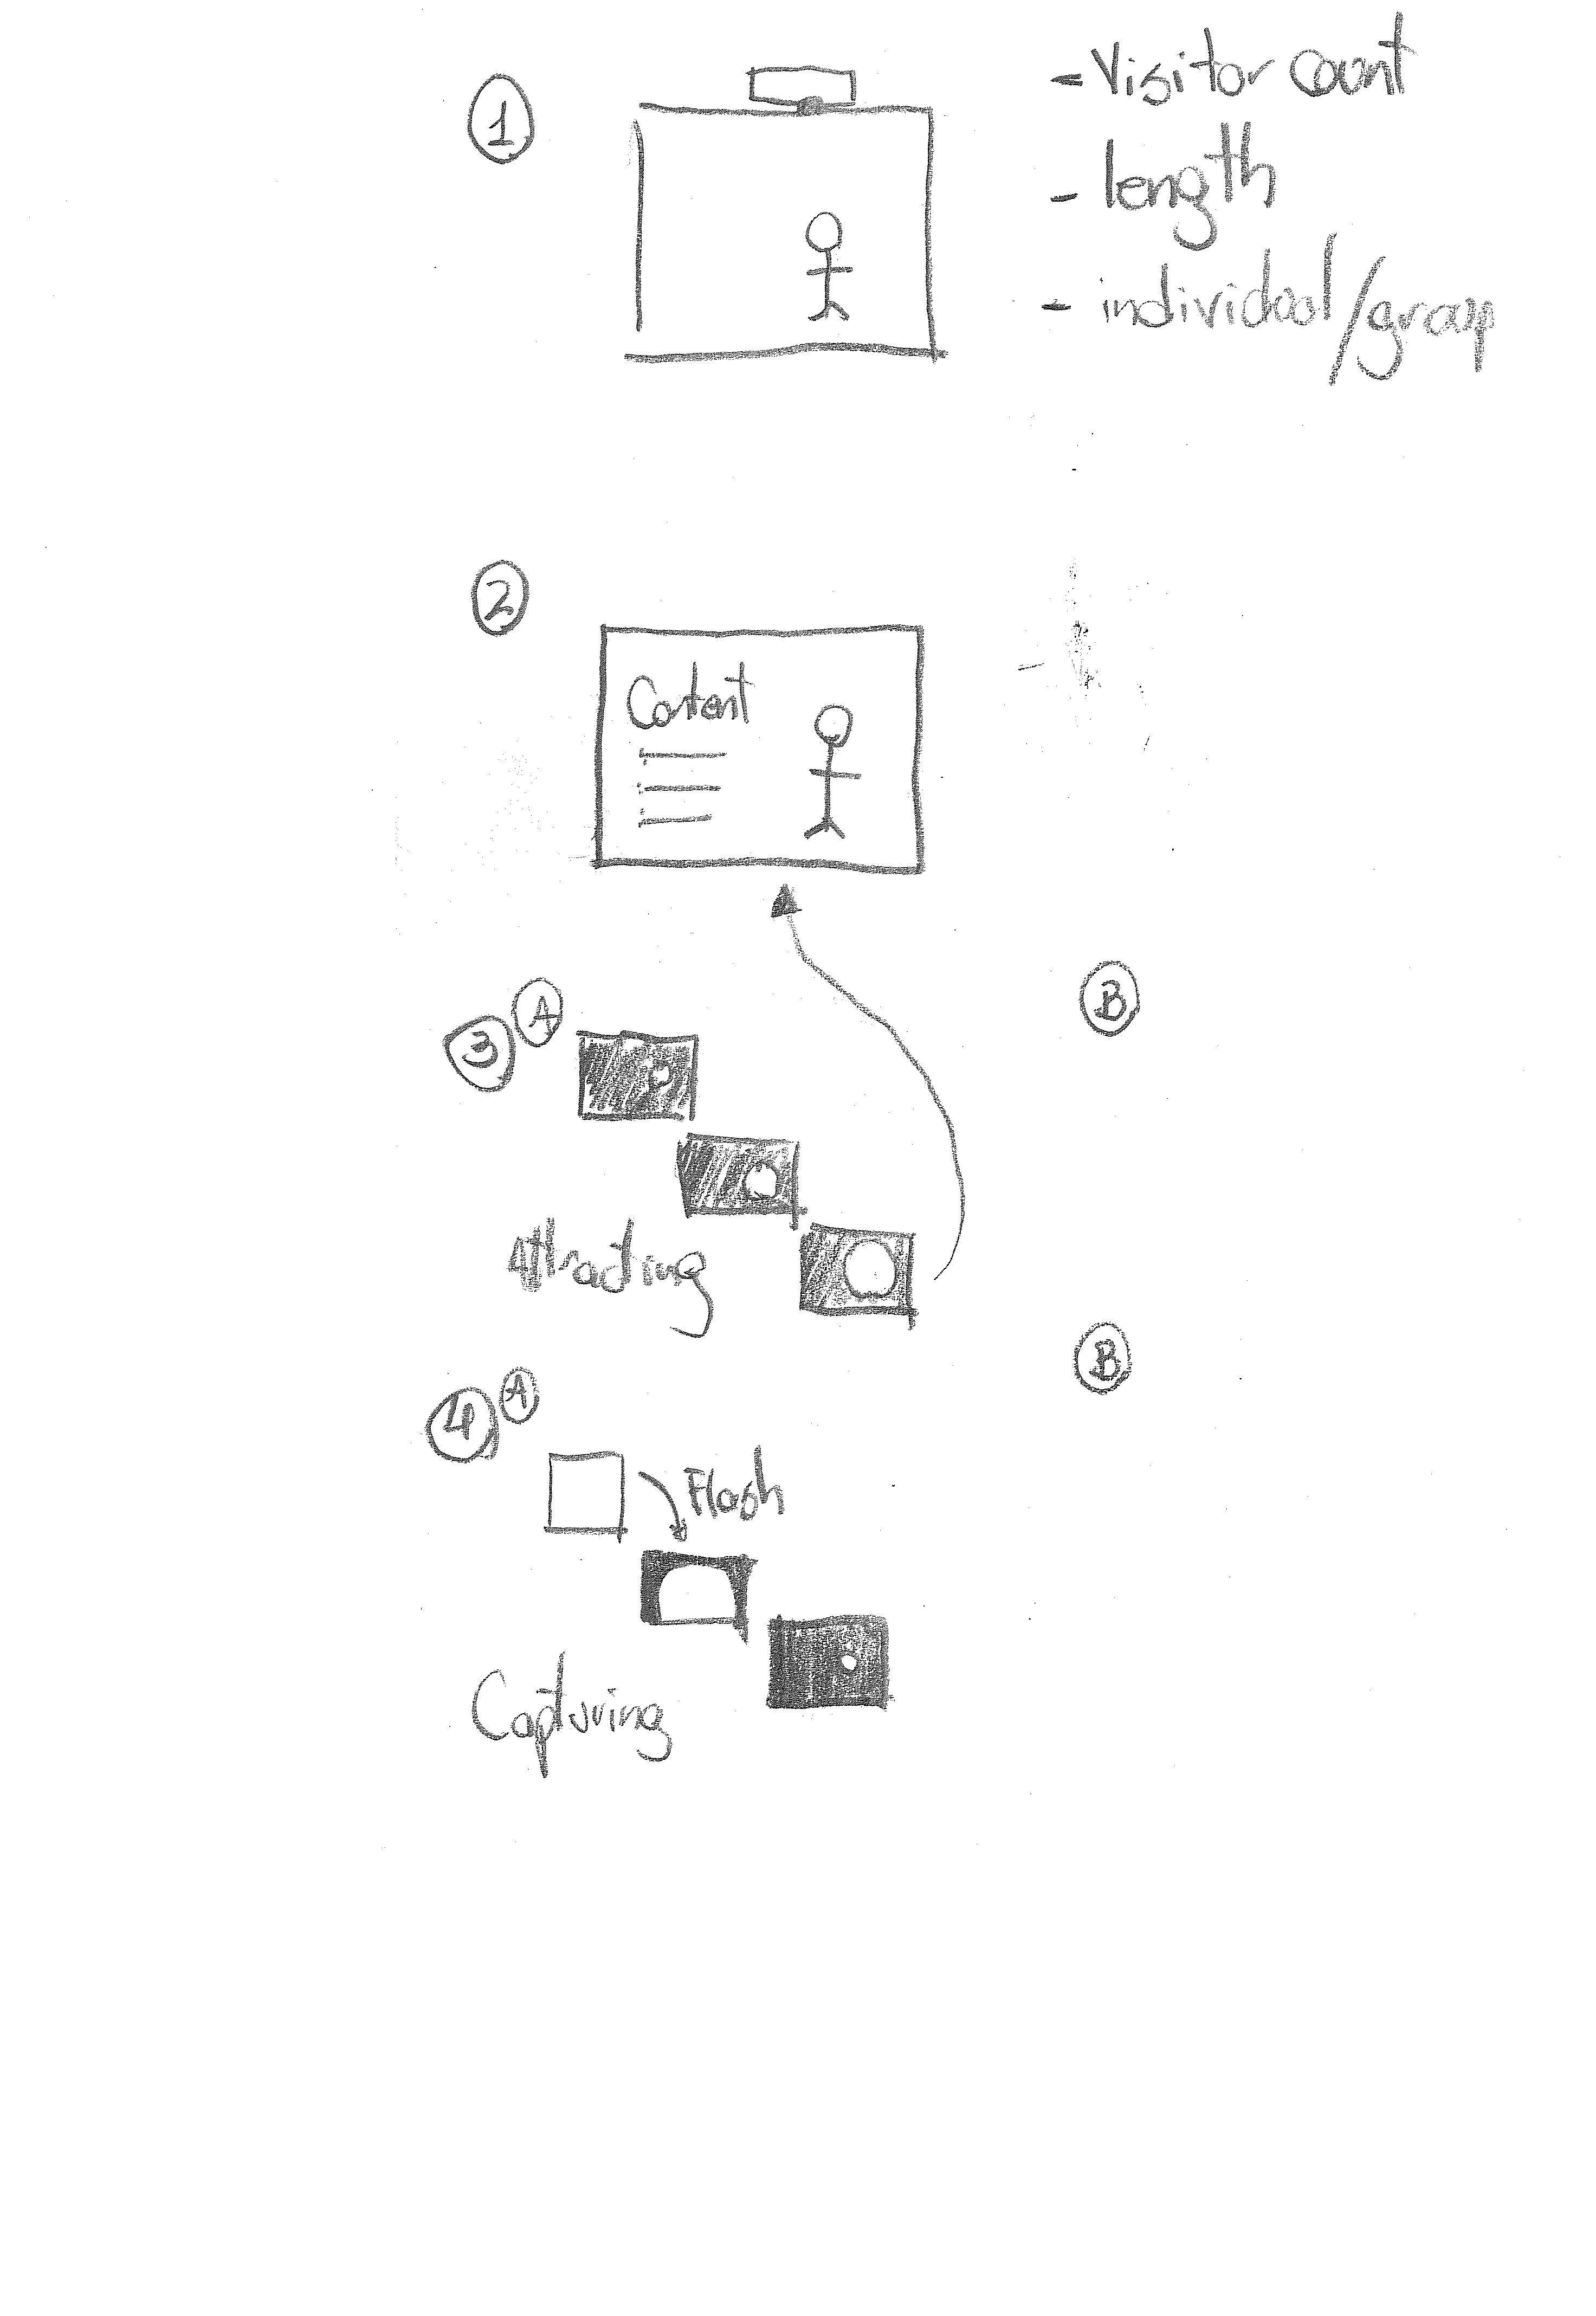 1
- Visitor count
- length
- individual/group
2
Content
3 A
B
Attracting
4 A
B
Flash
Capturing